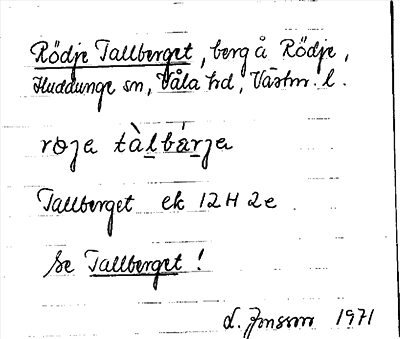 Rödje Tallberget, berg å Rödje,
Huddunge sn, Våla hd, Västm. l.
roja tàlbárja
Tallberget ek 12H 2e
Se Tallberget!
L. Jonsson 1971